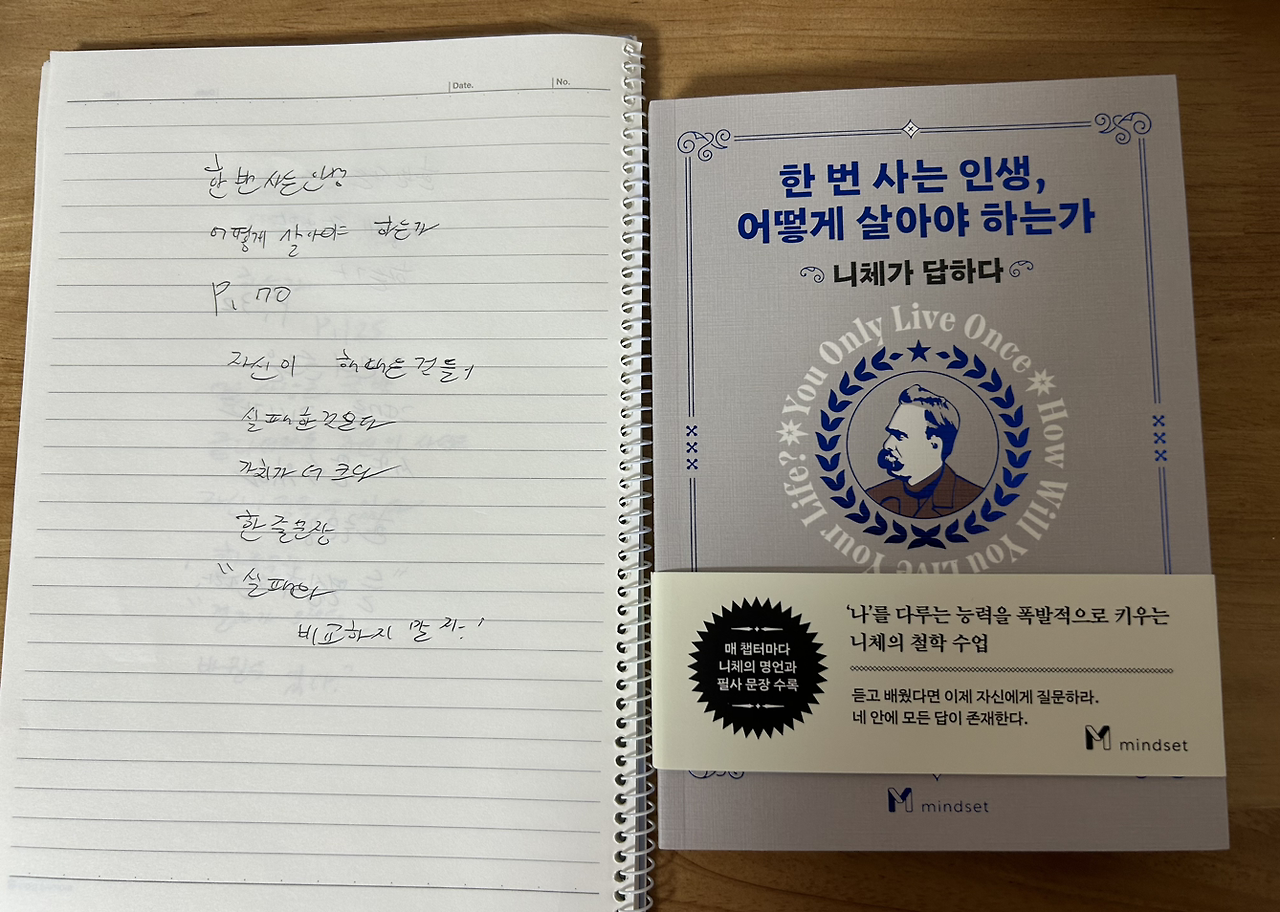 Date.
No.
한 번 사는 인생
어떻게 살아야 하는가
P. 70
자신이 해내는 건들이
실패한것은다
가치가 더 크다
한 줄 문장
" 실패와
비교하지 말 자. '
한 번 사는 인생,
어떻게 살아야 하는가
니체가 답하다
You Only Live Once
How Will You Live Your Life?
매 챕터마다
니체의 명언과
필사 문장 수록
'나'를 다루는 능력을 폭발적으로 키우는
니체의 철학 수업
듣고 배웠다면 이제 자신에게 질문하라.
네 안에 모든 답이 존재한다.
mindset
mindset